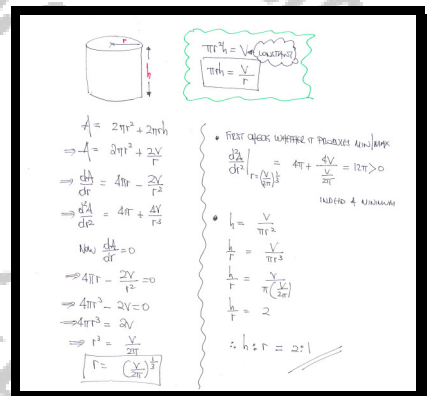 r
h
πr²h = V → CONSTANT
πrh = V/r
A = 2πr² + 2πrh
⇒ A = 2πr² + 2V/r
⇒ dA/dr = 4πr - 2V/r²
⇒ d²A/dr² = 4π + 4V/r³
Now dA/dr = 0
⇒ 4πr - 2V/r² = 0
⇒ 4πr³ - 2V = 0
⇒ 4πr³ = 2V
⇒ r³ = V/2π
r = (V/2π)^(1/3)
• FIRST CHECK WHETHER IT PRODUCES MIN/MAX
d²A/dr² | r=(V/2π)^(1/3) = 4π + 4V/(V/2π) = 12π > 0
INDEED A MINIMUM
• h = V/πr²
h/r = V/πr³
h/r = V/π(V/2π)
h/r = 2
∴ h : r = 2:1